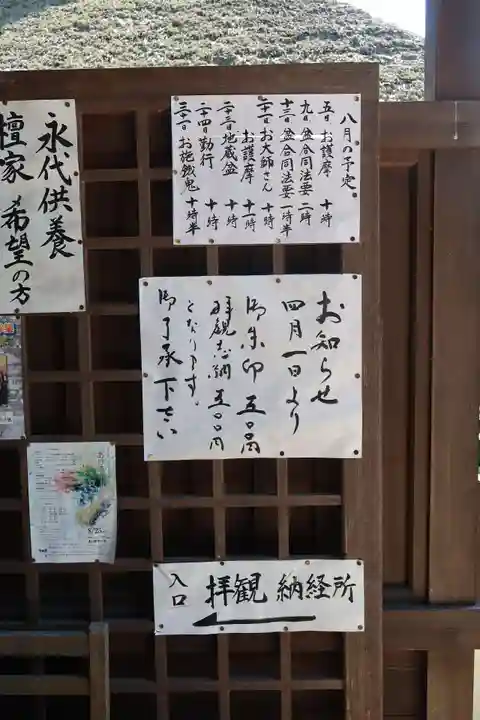 八月の予定
五日 お護摩 十時
九日 盆合同法要 二時
十三日 盆合同法要 一時半
二十一日 お大師さん 十時
お護摩 十一時
二十三日 地蔵盆 十時
二十四日 勤行 十時
三十一日 お施餓鬼 十時半
永代供養
檀家 希望の方
お知らせ
四月一日より
御朱印 五〇〇円
拝観志納 五〇〇円
となります。
御了承下さい
入口 拝観 納経所